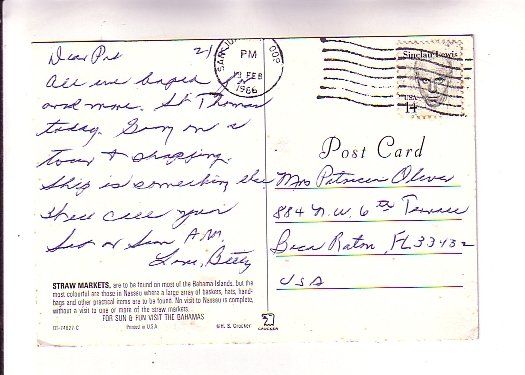 Dear Pat 2/
All we hoped for
and more. St Thomas
today. Gary on a
tour & shopping.
Ship is something else
Will call you
Sat or Sun A.M.
Love, Betty
SAN JU
PM
FEB
1986
Sinclair Lewis
USA
14
Post Card
Mrs Patricia Oliver
884 N.W. 6th Terrace
Boca Raton, FL 33432
USA
STRAW MARKETS, are to be found on most of the Bahama Islands, but the
most colourful are those in Nassau where a large array of baskets, hats, hand-
bags and other practical items are to be found. No visit to Nassau is complete,
without a visit to one or more of the straw markets.
FOR SUN & FUN VISIT THE BAHAMAS
Printed in U.S.A. ©H. S. Crocker
CROCKER